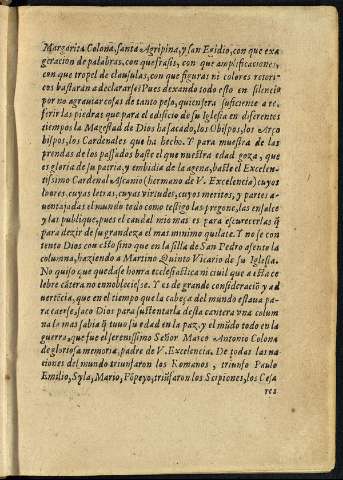 Margarita Colona, santa Agripina, y san Egidio, con que exa
geracion de palabras, con que frasis, con que amplificaciones,
con que tropel de clausulas, con que figuras ni colores retori-
cos bastaran a declararse? Pues dexando todo esto en silencio
por no agraviar cosas de tanto peso, quien sera suficiente a re-
ferir las piedras que para el edificio de su Iglesia en diferentes
tiempos la Magestad de Dios ha sacado, los Obispos, los Arço
bispos, los Cardenales que ha hecho. Y para muestra de las
prendas de los passados baste el que nuestra edad goza, que
es gloria de su patria, y embidia de la agena, baste el Excelen-
tissimo Cardenal Ascanio (hermano de V. Excelencia) cuyos
loores, cuyas letras, cuyas virtudes, cuyos meritos, y partes a-
uentajadas el mundo todo como testigo las pregone, las ensalce
y las publique, pues el caudal mio mas es para escurecerlas q̃
para dezir de su grandeza el mas minimo quilate. Y no se con
tento Dios con esto sino que en la silla de San Pedro asento la
columna, haziendo a Martino Quinto Vicario de su Iglesia.
No quiso que quedase honra ecclesiastica ni ciuil que a esta ce
lebre cãtera no ennobleciese. Y es de grande consideraciõ y ad
uertécia, que en el tiempo que la cabeça del mundo estaua pa-
ra caerse, saco Dios para sustentarla desta cantera vna colum
na la mas sabia q̃ tuuo su edad en la paz, y el mũdo todo en la
guerra, que fue el serenissimo Señor Marco Antonio Colona
de gloriosa memoria, padre de V. Excelencia. De todas las na
ciones del mundo triunfaron los Romanos, triunfo Paulo
Emilio, Syla, Mario, Põpeyo, triũfaron los Scipiones, los Cesa
res